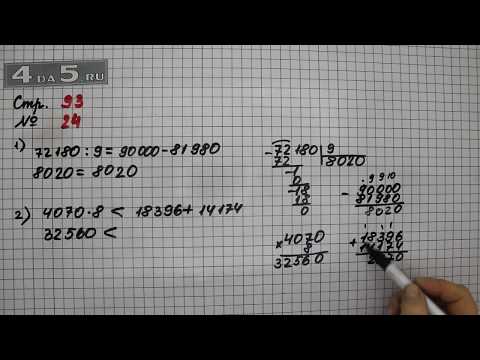 4 DA 5.RU
Стр. 93
№ 24
1)
72180 : 9 = 90000 - 81980
8020 = 8020
2) 4070 · 8 < 18396 + 14174
32560 <
- 72180 | 9
72 | 8020
18
18
0
- 90000
81980
8020
× 4070
8
32560
+ 18396